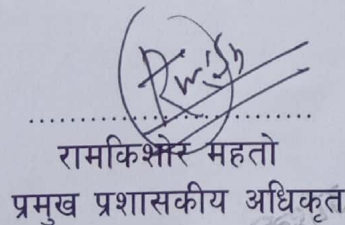 रामकिशोर महतो
प्रमुख प्रशासकीय अधिकृत